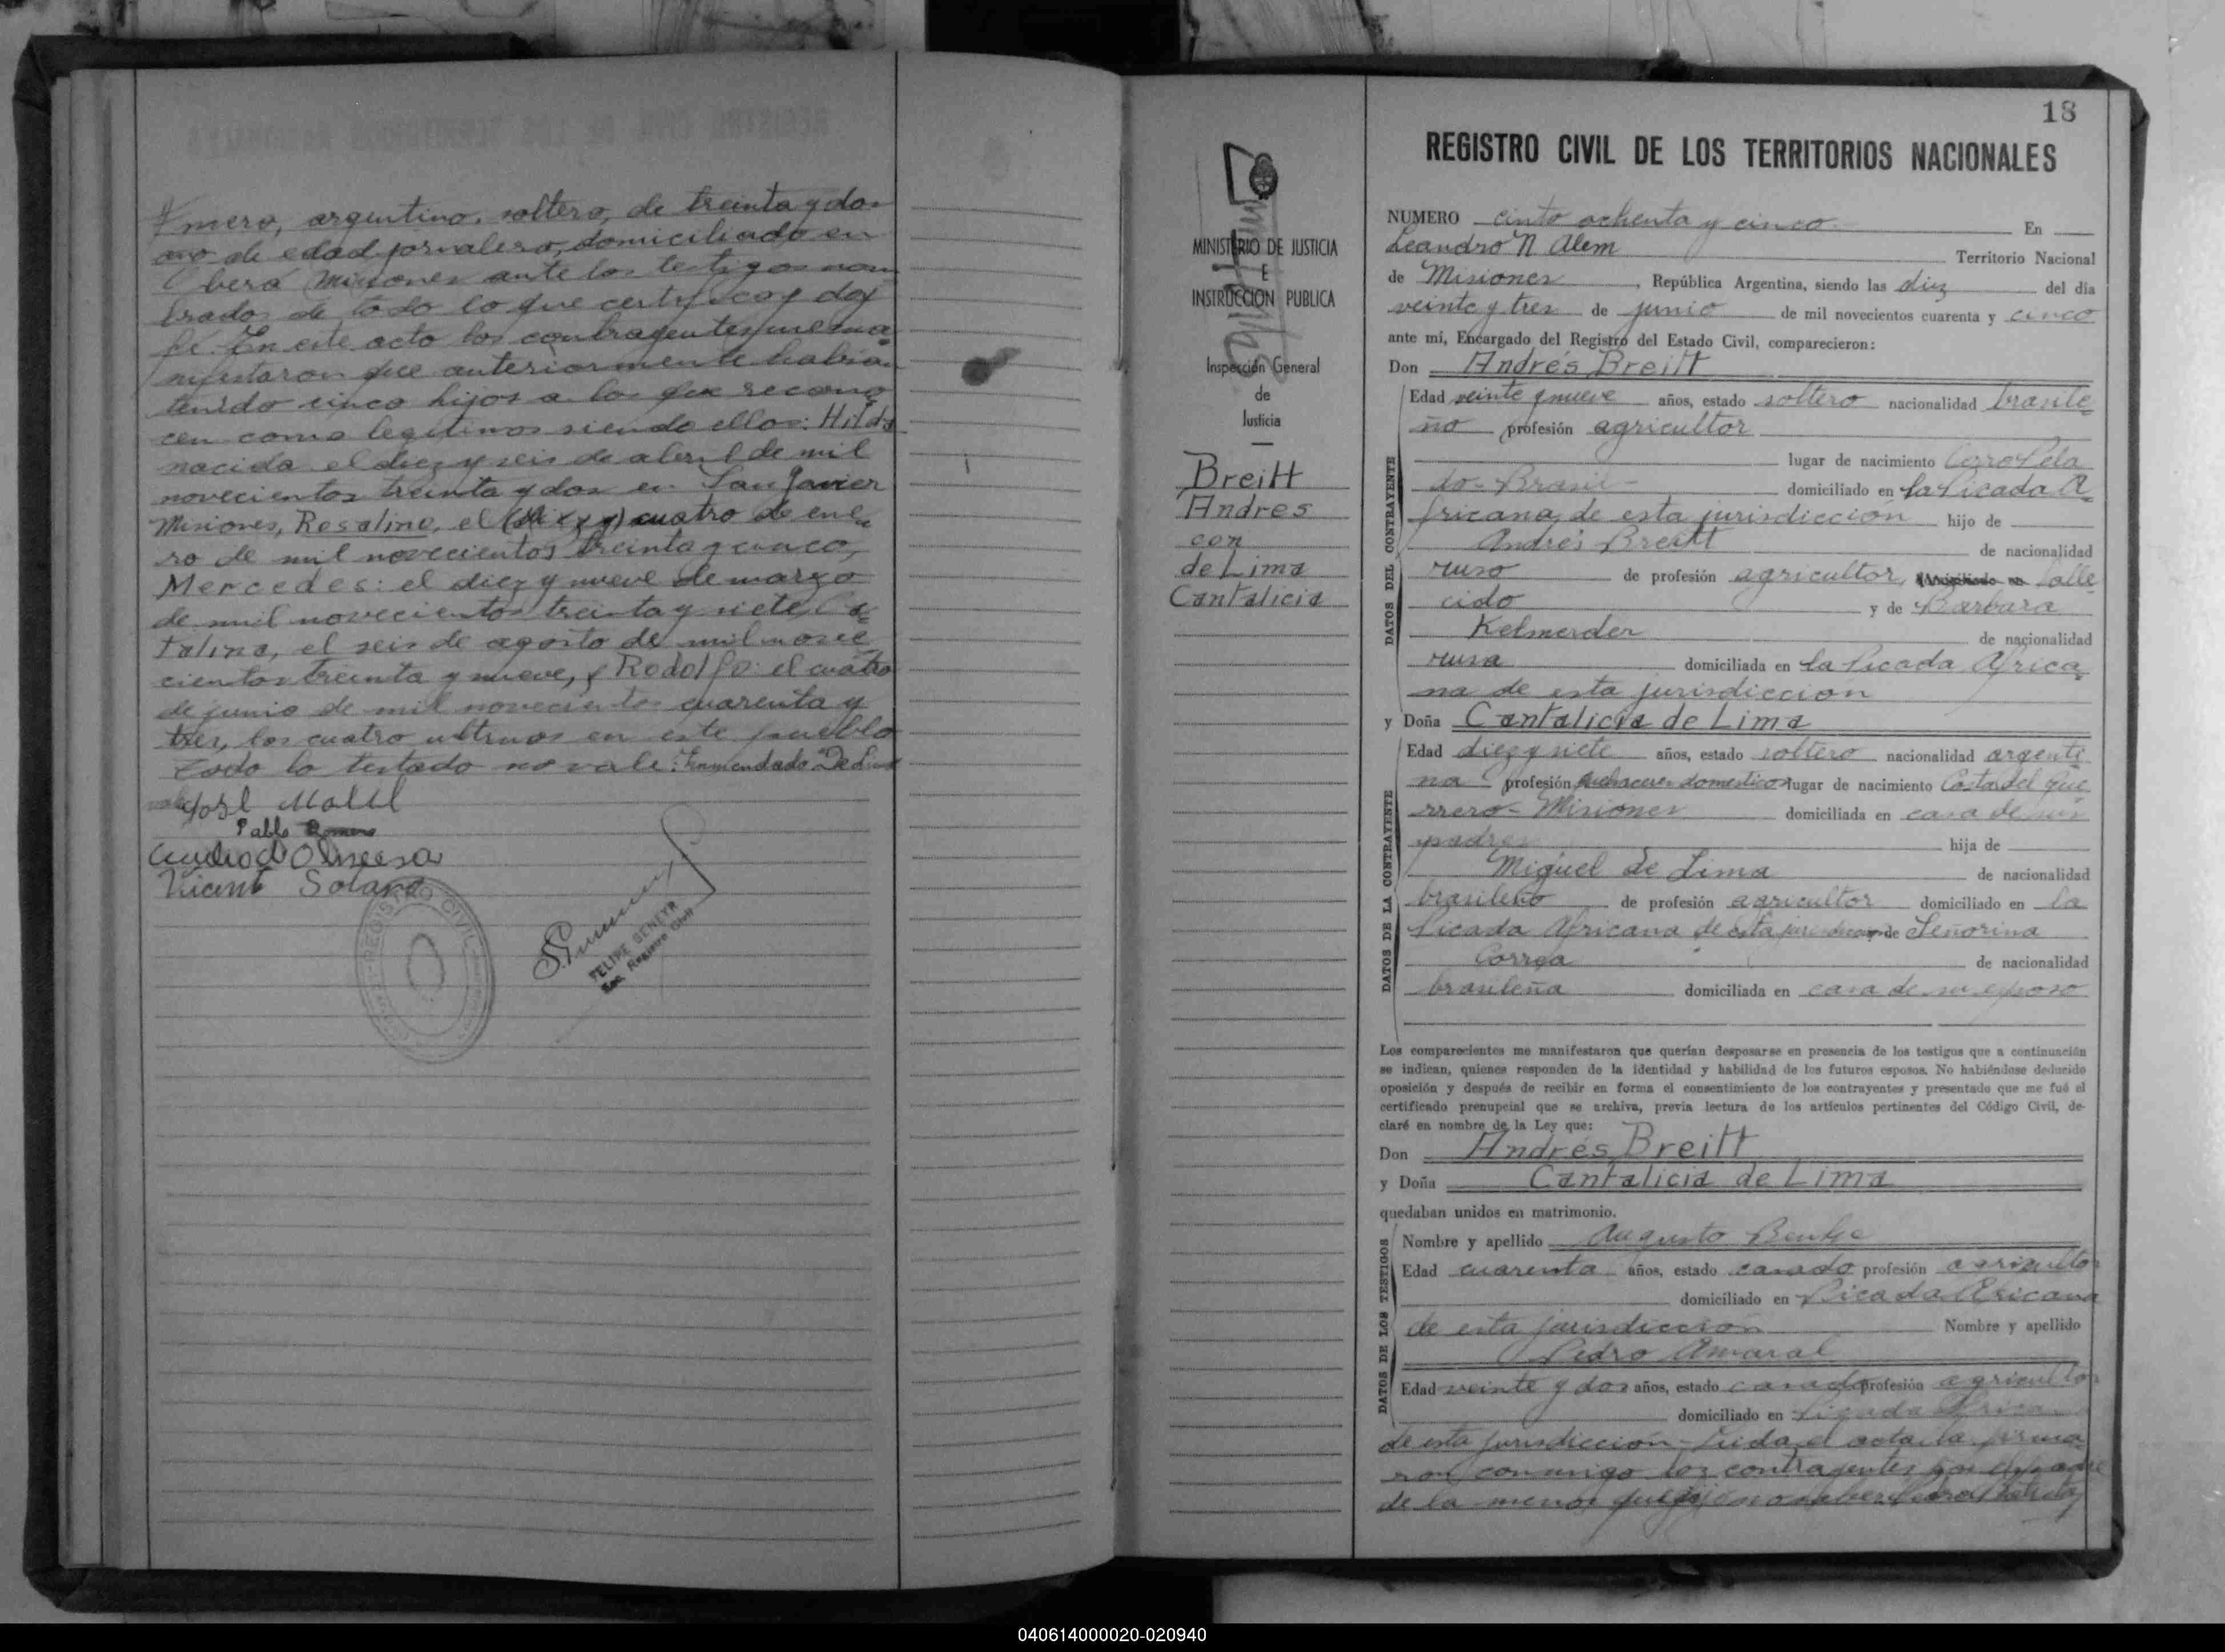 mero, argentino, soltero, de treinta y dos
años de edad jornalero, domiciliado en
Oberá Misiones ante los testigos nom
brados de todo lo que certifico y doy
fé. En este acto los contrayentes me ma
nifestaron que anteriormente habían
tenido cinco hijos a los que recono
cen como legitimos siendo ellos: Hilda
nacida el diez y seis de abril de mil
novecientos treinta y dos en San Javier
Misiones, Rosalino, el (diez y) cuatro de ene
ro de mil novecientos treinta y cinco,
Mercedes: el diez y nueve de marzo
de mil novecientos treinta y siete, Ca
talina, el seis de agosto de mil nove
cientos treinta y nueve, y Rodolfo: el cuatro
de junio de mil novecientos cuarenta y
tres, los cuatro ultimos en este pueblo
todo lo testado no vale: Enmendado
José
Pablo
Vicente Solano
REGISTRO CIVIL
FELIPE BENEYR
Enc. Registro Civil
MINISTERIO DE JUSTICIA
E
INSTRUCCIÓN PUBLICA
Inspección General
de
Justicia
Breitt
Andres
con
de Lima
Cantalicia
18
REGISTRO CIVIL DE LOS TERRITORIOS NACIONALES
NUMERO cinto ochenta y cinco En
Leandro N Alem Territorio Nacional
de Misiones, República Argentina, siendo las diez del día
veinte y tres de junio de mil novecientos cuarenta y cinco
ante mí, Encargado del Registro del Estado Civil, comparecieron:
Don Andrés Breitt
DATOS DEL CONTRAYENTE
Edad veinte y nueve años, estado soltero nacionalidad brasile
ño profesión agricultor
lugar de nacimiento Cerro Pela
do - Brasil - domiciliado en la Picada A
fricana, de esta jurisdiccion hijo de
Andrés Breitt de nacionalidad
ruso de profesión agricultor, falle
cido y de Barbara
Kelmerder de nacionalidad
rusa domiciliada en la Picada Africa
na de esta jurisdiccion
y Doña Cantalicia de Lima
DATOS DE LA CONTRAYENTE
Edad diez y siete años, estado soltero nacionalidad argenti
na profesión quehaceres domesticos lugar de nacimiento Costa del Gue
rrero - Misiones domiciliada en casa de sus
padres hija de
Miguel de Lima de nacionalidad
brasileño de profesión agricultor domiciliado en la
Picada Africana de esta jurisdiccion y de Señorina
Correa de nacionalidad
brasileña domiciliada en casa de su esposo
Los comparecientes me manifestaron que querían desposarse en presencia de los testigos que a continuación
se indican, quienes responden de la identidad y habilidad de los futuros esposos. No habiéndose deducido
oposición y después de recibir en forma el consentimiento de los contrayentes y presentado que me fué el
certificado prenupcial que se archiva, previa lectura de los artículos pertinentes del Código Civil, de-
claré en nombre de la Ley que:
Don Andrés Breitt
y Doña Cantalicia de Lima
quedaban unidos en matrimonio.
DATOS DE LOS TESTIGOS
Nombre y apellido Augusto
Edad cuarenta años, estado casado profesión agricultor
domiciliado en Picada Africana
de esta jurisdiccion Nombre y apellido
Pedro Amaral
Edad veinte y dos años, estado casado profesión agricultor
domiciliado en Picada
de esta jurisdicción - Leida el acta la firma
ron conmigo los contrayentes por el padre
de la menor que dijo no saber
040614000020-020940